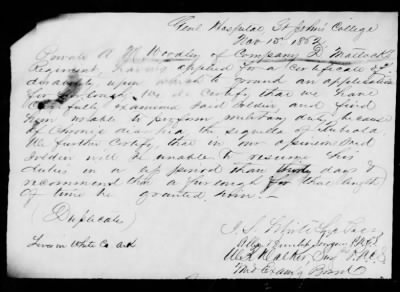 Genl Hospital St John's College
Nov 15 1862
Private A M Woodley of Company D Matlock's
Regiment, having applied for a Certificate of
disability, upon which to ground an application
for furlough. We do Certify, that we have
carefully examined said soldier and find
him unable to perform military duty, because
of Chronic diarrhea the sequela of Rubeola
We further Certify, that in our opinion said
soldier will be unable to resume his
duties in a period than thirty days &
recommend that a furlough for that length
of time be granted him. —
(Duplicate)
Lives in White Co Ark